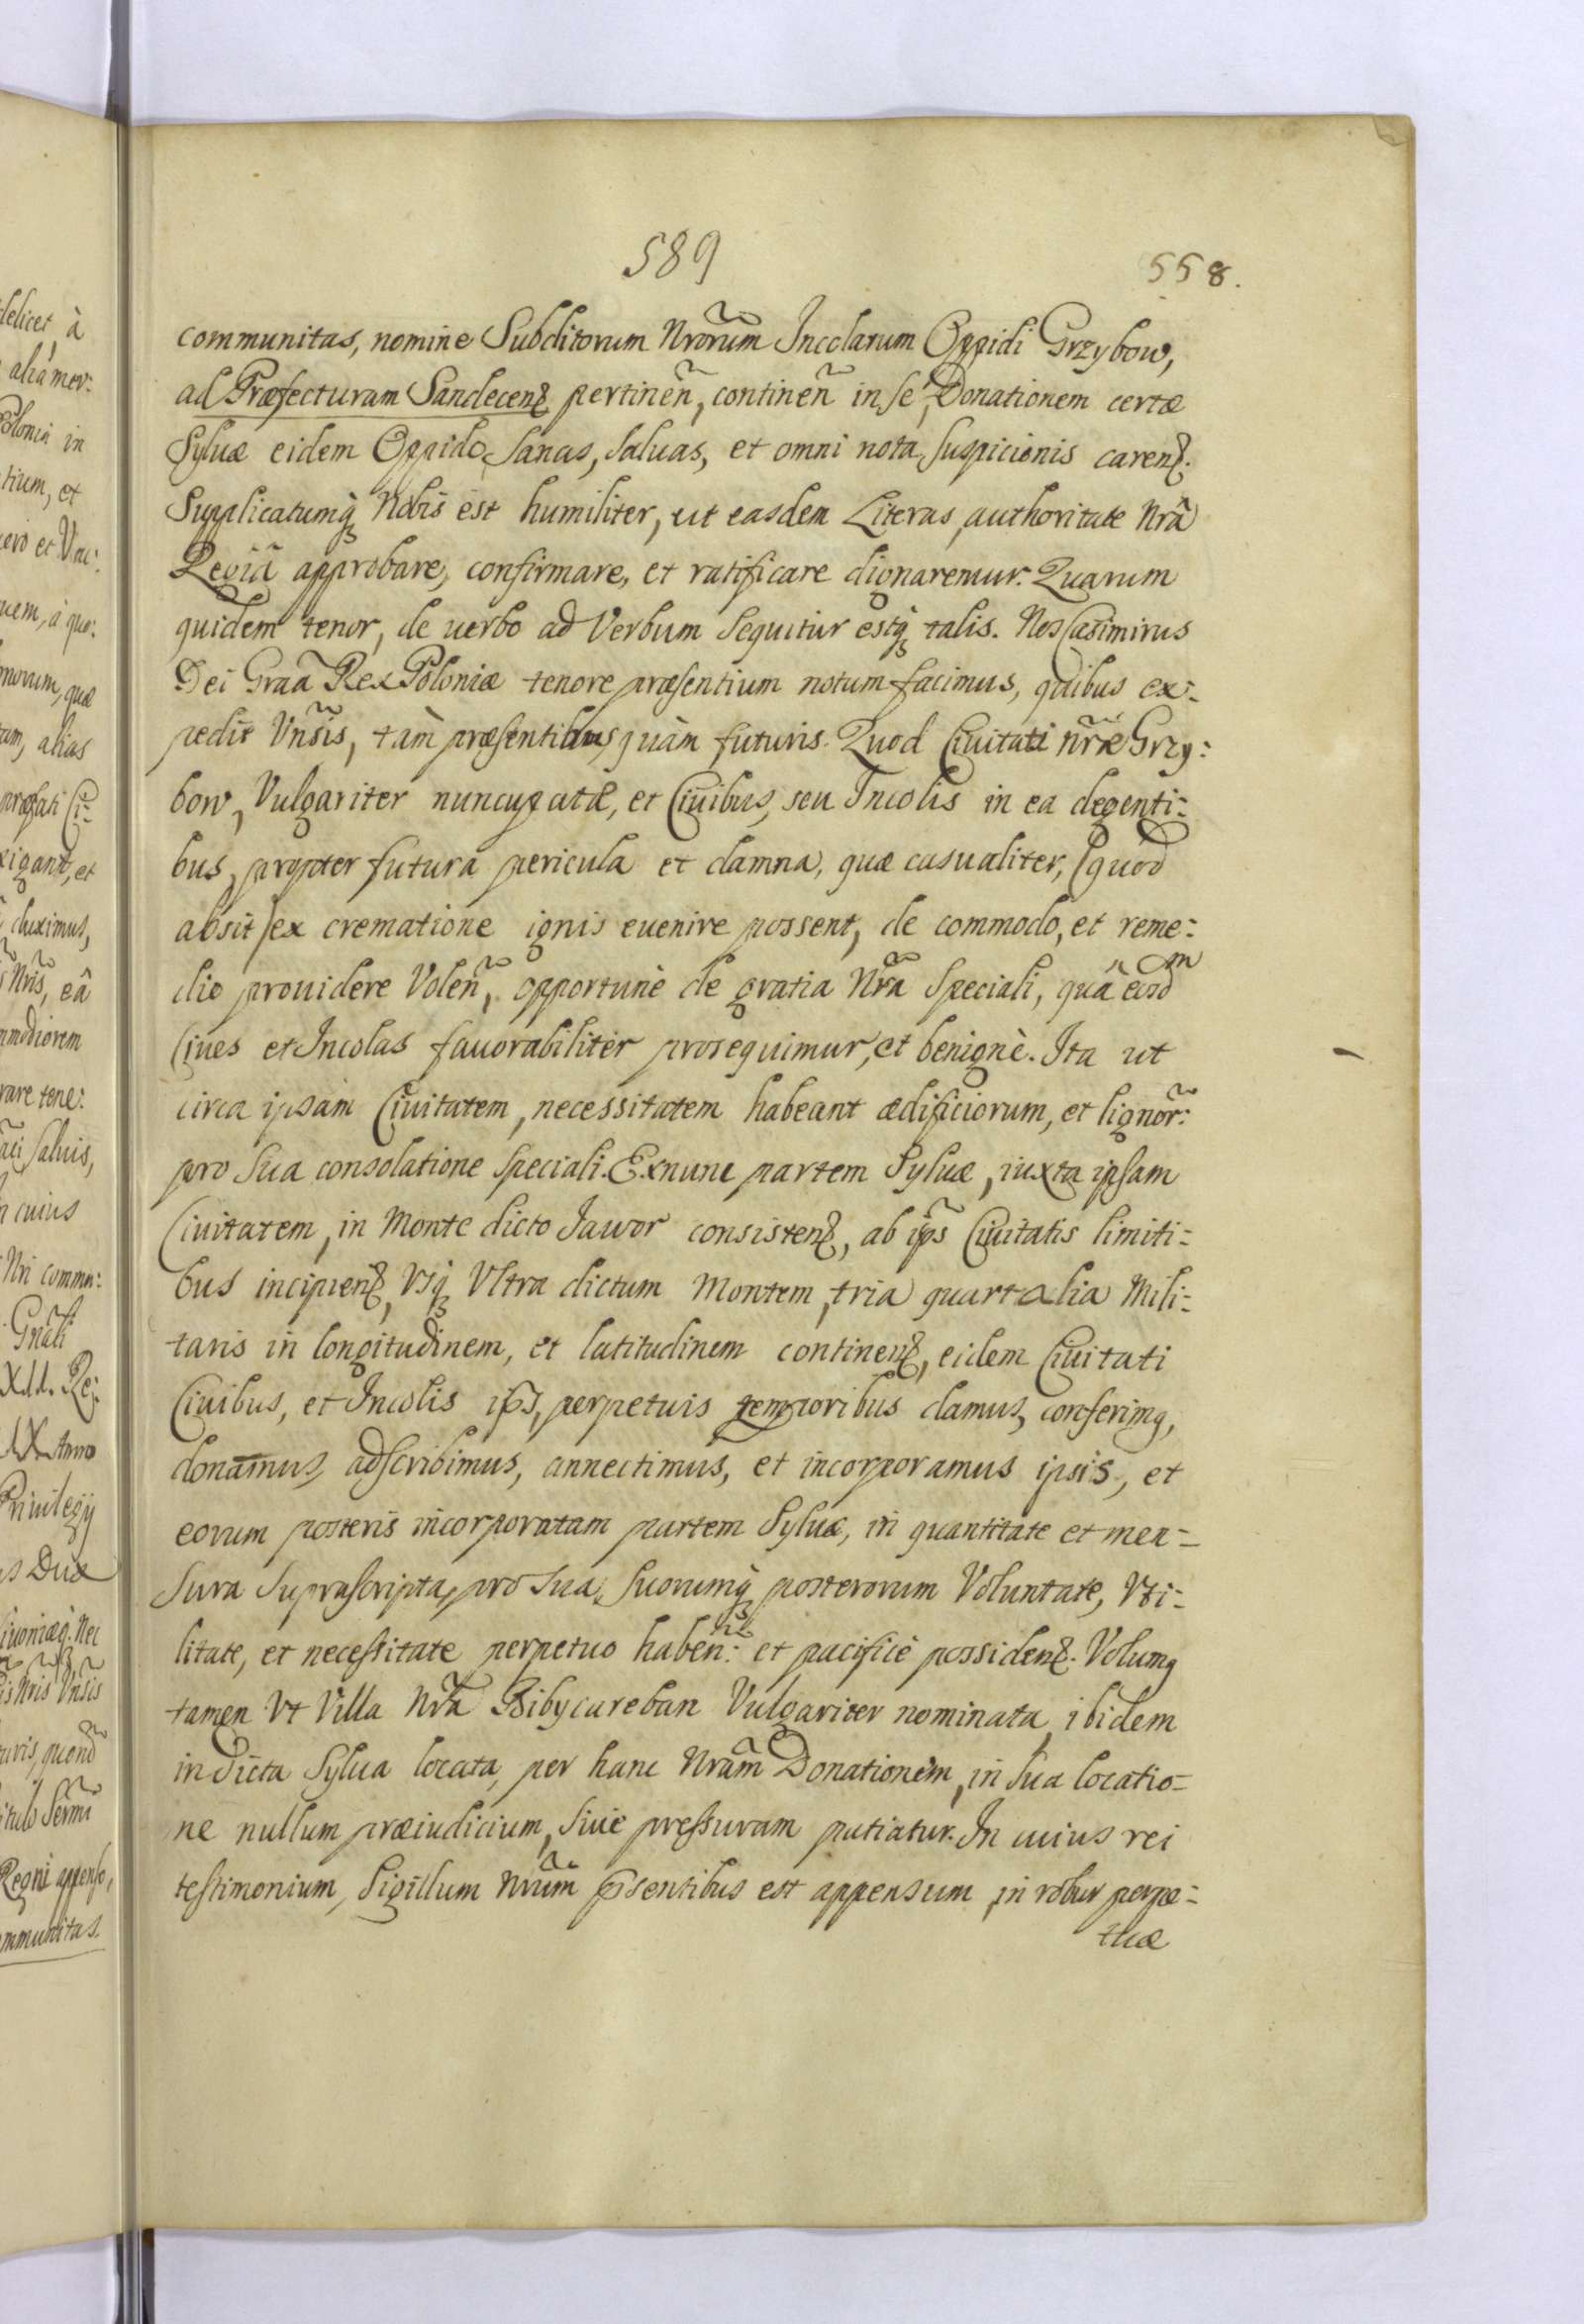 589
558.
communitas, nomine Subditorum Nrõrum Incolarum Oppidi Grzybow,
ad Præfecturam Sandecenȝ pertineñ, contineñ in se, Donationem certæ
Syluæ eidem Oppido, Sanas, Saluas, et omni nota Suspicionis carenȝ.
Supplicatumq̃ Nobis est humiliter, ut easdem Literas, authoritate Nrâ
Regiâ approbare, confirmare, et ratificare dignaremur. Quarum
quidem tenor, de uerbo ad Verbum Sequitur estq̃ talis. Nos Casimirus
Dei Graã Rex Poloniæ tenore præsentium notum facimus, quibus ex-
pedit Vñsis, tàm præsentibus, quàm futuris. Quod Ciuitati nr̃æ Grzy:
bow, Vulgariter nuncupatæ, et Ciuibus, seu Incolis in ea degenti:
bus, propter futura pericula et damna, quæ casualiter, (quod
absit) ex crematione ignis euenire possent, de commodo, et reme:
dio prouidere Voleñ, opportunè de gratia Nr̃a Speciali, quâ eosd
m
Ciues et Incolas fauorabiliter prosequimur, et benignè. Ita ut
circa ipsam Ciuitatem, necessitatem habeant ædificiorum, et lignor̃:
pro Sua consolatione Speciali. Exnunc partem Syluæ, iuxta ipsam
Ciuitatem, in Monte dicto Jawor consistenȝ, ab ip̃s Ciuitatis limiti:
bus incipienȝ, Vsq̃ Vltra dictum Montem, tria quartalia Mili:
taris in longitudinem, et latitudinem continenȝ, eidem Ciuitati
Ciuibus, et Incolis ip̃s, perpetuis temporibus damus, conferimq,
donamus, adscribimus, annectimus, et incorporamus ipsis, et
eorum posteris incorporatam partem Syluæ, in quantitate et men=
Sura Suprascripta, pro Sua, Suorumq̃ posterorum Voluntate, Vti:
litate, et necessitate perpetuo habeñ: et pacificè possidenȝ. Volumq
tamen Vt Villa Nr̃a Bibycareban Vulgariter nominata, ibidem
in dicta Sylua locata, per hanc Nram̃ Donationem, in Sua locatio=
ne nullum præiudicium, Siue pressuram patiatur. In cuius rei
testimonium, Sigillum Nrũm p̃sentibus est appensum, in robur perpe=
tuæ